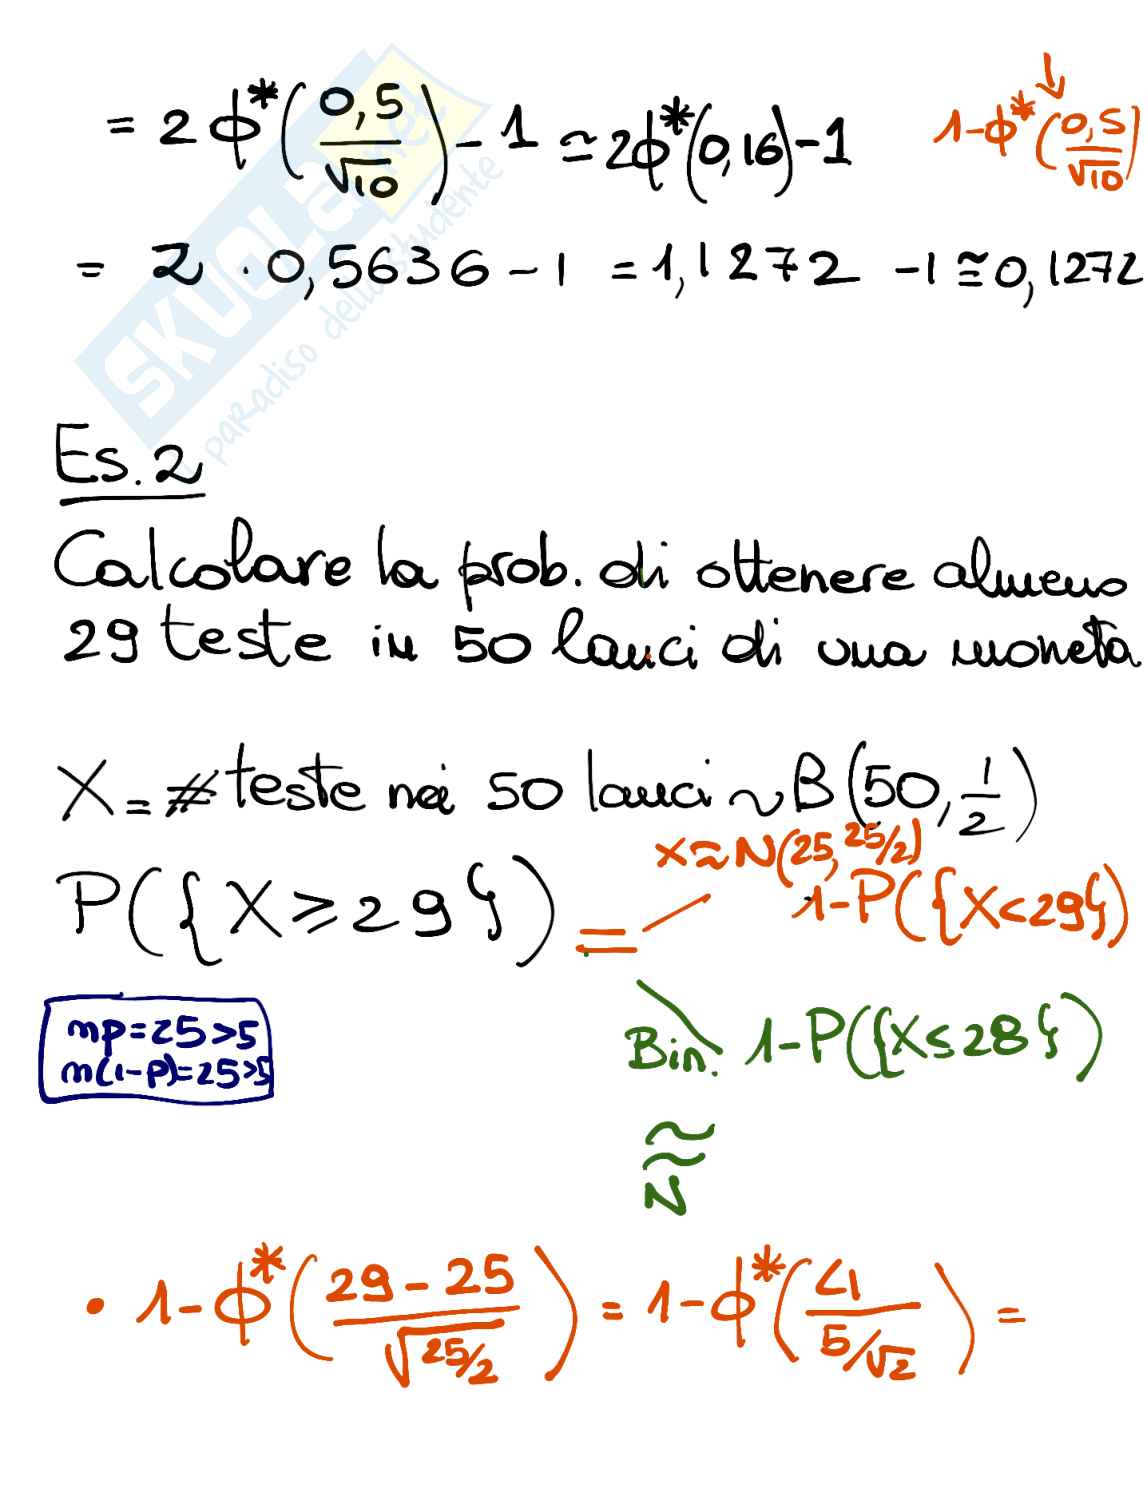 = 2 ϕ*(0,5/√10) - 1 ≃ 2ϕ*(0,16) - 1
1-ϕ*(0,5/√10)
= 2 · 0,5636 - 1 = 1,1272 - 1 ≅ 0,1272
SKUOLA.net
il paradiso dello studente
Es. 2
Calcolare la prob. di ottenere almeno
29 teste in 50 lanci di una moneta
X = # teste nei 50 lanci ~ B(50, 1/2)
X ≈ N(25, 25/2)
P({X ≥ 29}) = 1-P({X<29})
np=25>5
n(1-p)=25>5
Bin. 1-P({X≤28})
≈
N
• 1-ϕ*(29-25/√25/2) = 1-ϕ*(4/5/√2) =